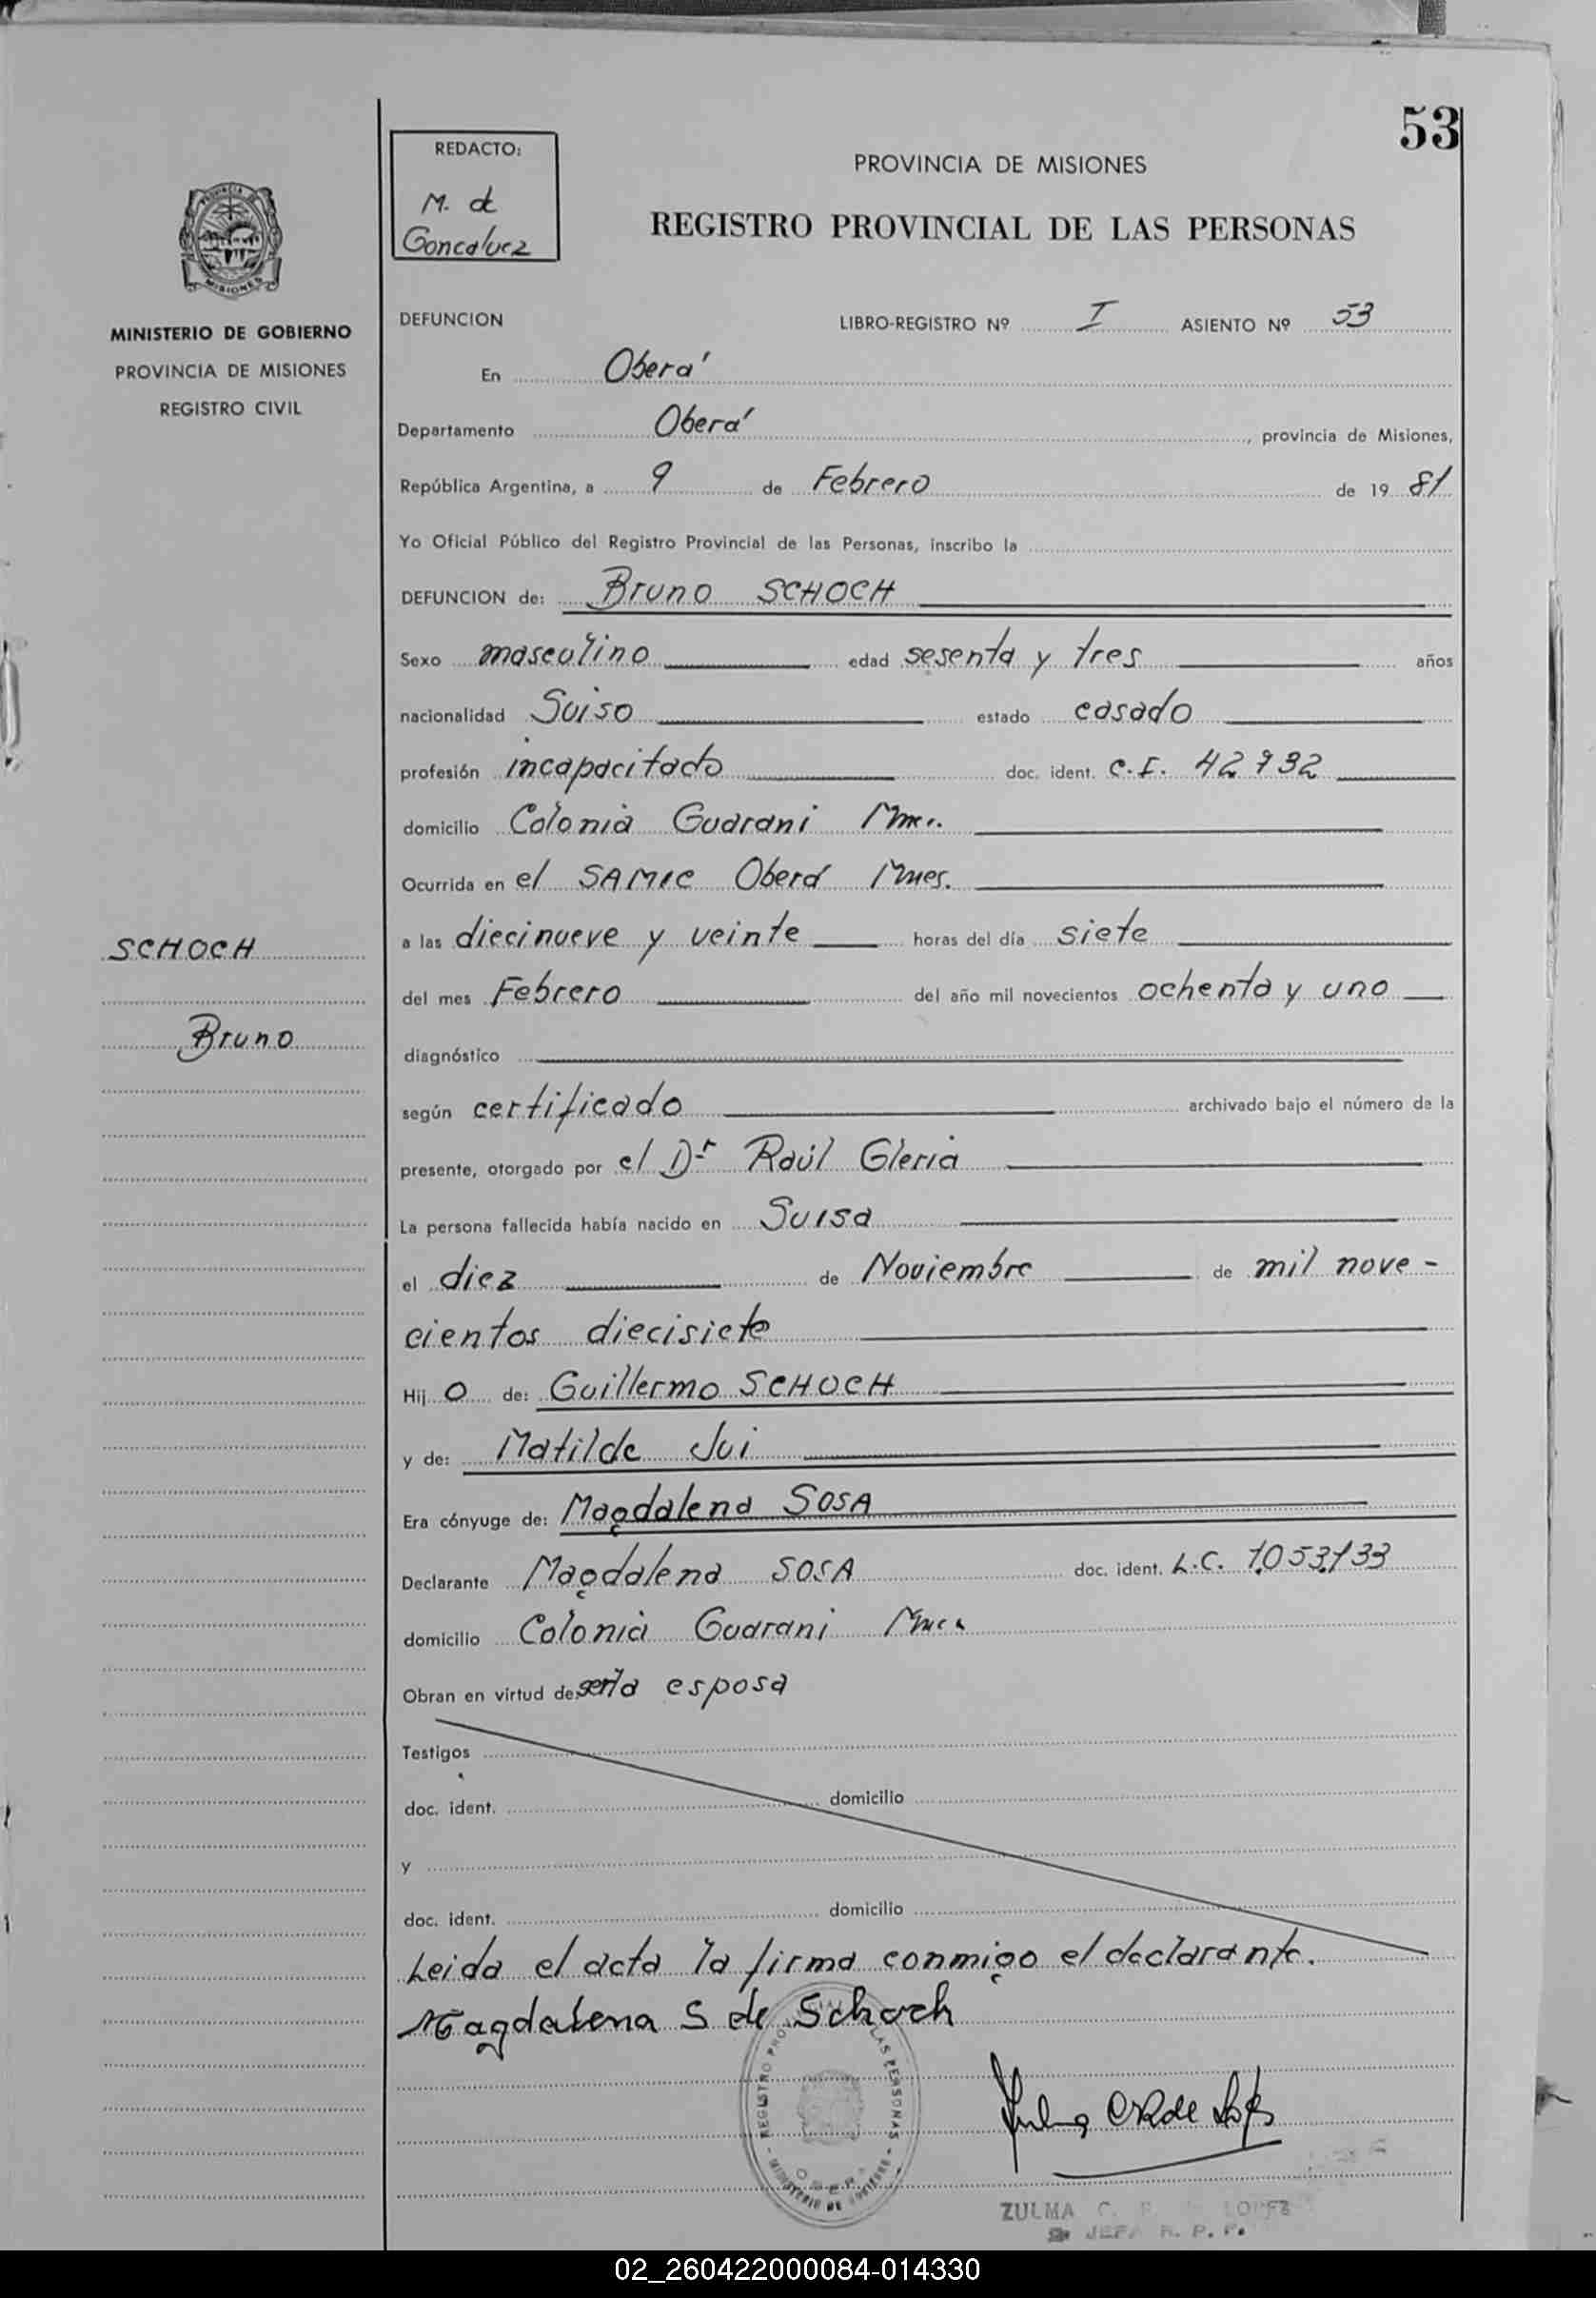 53
REDACTO:
M. de
Goncalvez
PROVINCIA DE MISIONES
REGISTRO PROVINCIAL DE LAS PERSONAS
MISIONES
MINISTERIO DE GOBIERNO
PROVINCIA DE MISIONES
REGISTRO CIVIL
DEFUNCION LIBRO-REGISTRO Nº I ASIENTO Nº 53
En Oberá
Departamento Oberá, provincia de Misiones,
República Argentina, a 9 de Febrero de 1981
Yo Oficial Público del Registro Provincial de las Personas, inscribo la
DEFUNCION de: Bruno SCHOCH
Sexo masculino edad sesenta y tres años
nacionalidad Suiso estado casado
profesión incapacitado doc. ident. C.I. 42732
domicilio Colonia Guarani
Ocurrida en el SAMIC Oberá Mnes.
SCHOCH
Bruno
a las diecinueve y veinte horas del día siete
del mes Febrero del año mil novecientos ochenta y uno
diagnóstico
según certificado archivado bajo el número de la
presente, otorgado por el Dr Raúl Gleria
La persona fallecida había nacido en Suisa
el diez de Noviembre de mil nove-
cientos diecisiete
Hijo de: Guillermo SCHOCH
y de: Matilde Jui
Era cónyuge de: Magdalena SOSA
Declarante Magdalena SOSA doc. ident. L.C. 1.053.133
domicilio Colonia Guarani
Obran en virtud de ser la esposa
Testigos
doc. ident. domicilio
y
doc. ident. domicilio
Leida el acta la firma conmigo el declarante.
Magdalena S de Schoch
REGISTRO LAS PERSONAS
ZULMA C. LOPEZ
JEFA R. P. P.
02_260422000084-014330